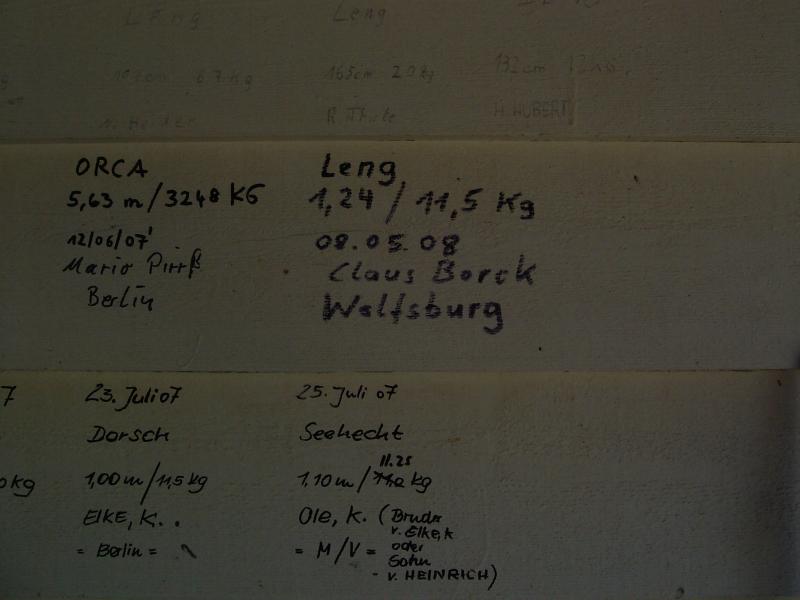 Leng
Leng
6.7 kg
165cm 20 kg
132cm
R. Thule
H. HUBERT
ORCA
5,63 m/3248 KG
12/06/07'
Mario Pirrß
Berlin
Leng
1,24 / 11,5 Kg
08.05.08
Claus Borck
Wolfsburg
7
kg
23. Juli 07
Dorsch
1,00m/11,5 kg
ElKE, K..
= Berlin =
25. Juli 07
Seehecht
11.25
1.10 m/ kg
Ole, K. (Bruder
v. Elke, k
oder
Sohn
v. HEINRICH)
= M/V =